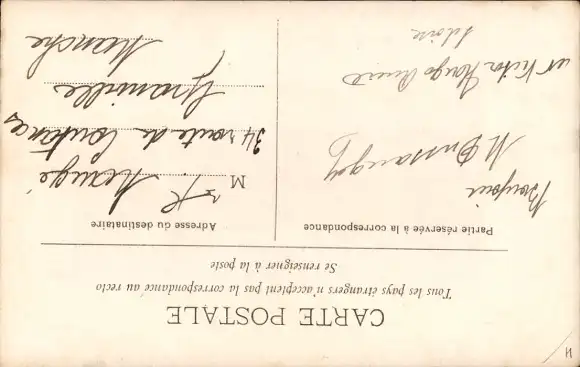 CARTE POSTALE
Tous les pays étrangers n'acceptent pas la correspondance au recto
Se renseigner à la poste
Partie réservée à la correspondance
Bonjour
M
Victor Hugo
Adresse du destinataire
M
34 route de Coutances
Granville
Manche